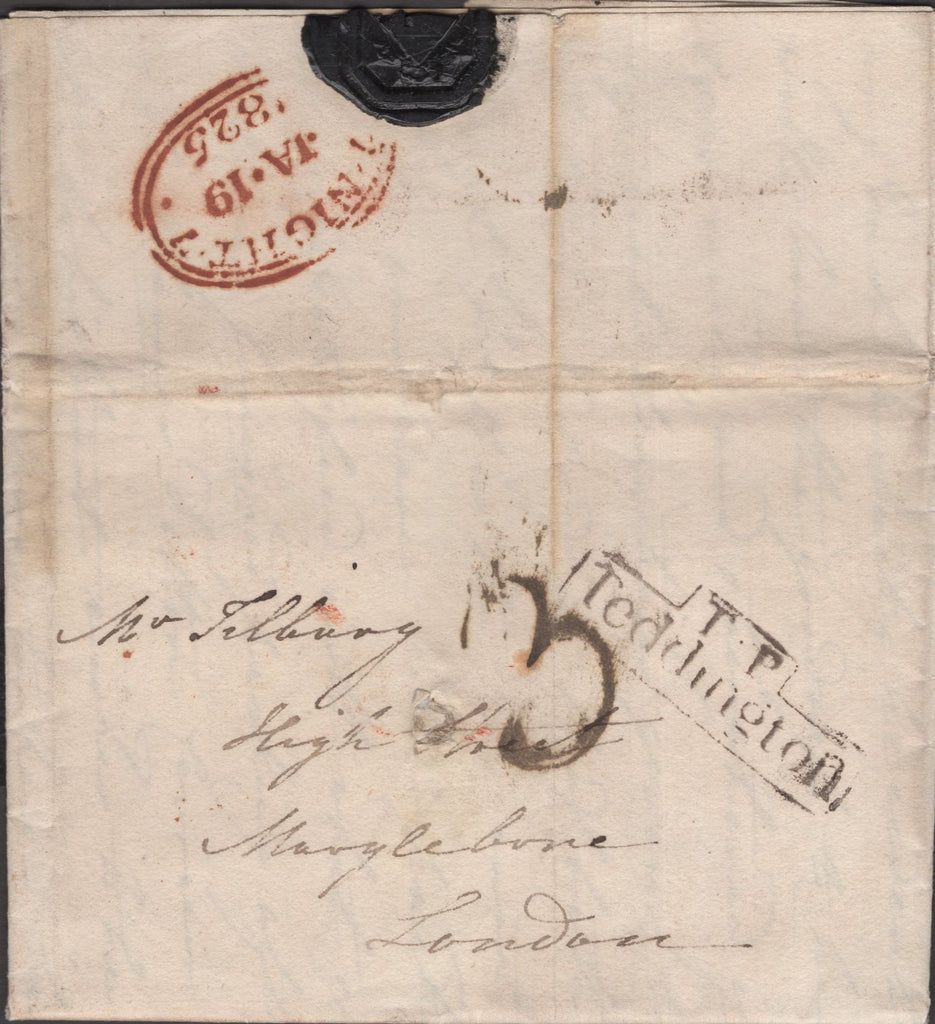 7·NIGHT·7
JA·19
1825
T.P
Teddington
3
Mr Tilbury
High Street
Marylebone
London